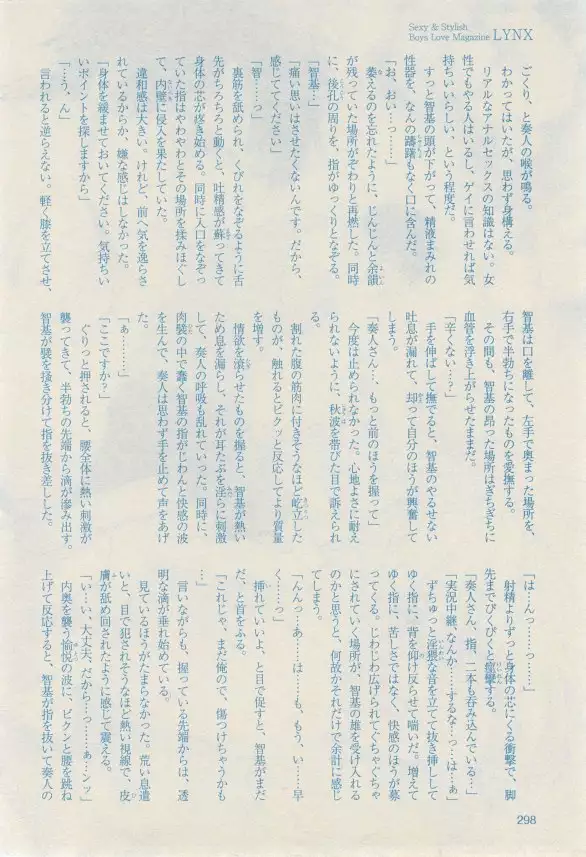 Sexy & Stylish
Boys Love Magazine LYNX
ごくり、と奏人の喉が鳴る。
わかってはいたが、思わず身構える。
リアルなアナルセックスの知識はない。女
性でもやる人はいるし、ゲイに言わせれば気
持ちいいらしい、という程度だ。
すっと智基の頭が下がって、精液まみれの
性器を、なんの躊躇もなく口に含んだ。
「お、おい……っ……」
萎えるのを忘れたように、じんじんと余韻
が残っていた場所がぞわりと再燃した。同時
に、後孔の周りを、指がゆっくりとなぞる。
「智基…」
「痛い思いはさせたくないんです。だから、
感じてください」
「智……っ」
裏筋を舐められ、くびれをなぞるように舌
先がちろちろと動くと、吐精感が蘇ってきて
身体の芯が疼き始める。同時に入口をなぞっ
ていた指はやわやわとその場所を揉みほぐし
て、内壁に侵入を果たしていた。
違和感は大きい。けれど、前へ気を逸らさ
れているからか、嫌な感じはしなかった。
「身体を緩ませておいてください。気持ちい
いポイントを探しますから」
「…う、ん」
言われると逆らえない。軽く膝を立てさせ、
智基は口を離して、左手で奥まった場所を、
右手で半勃ちになったものを愛撫する。
その間も、智基の昂った場所はぎちぎちに
血管を浮き上がらせたままだ。
「辛くない…？」
手を伸ばして撫でると、智基のやるせない
吐息が漏れて、却って自分のほうが興奮して
しまう。
「奏人さん…、もっと前のほうを握って」
今度は止められなかった。心地よさに耐え
られないように、秋波を帯びた目で訴えられ
る。
割れた腹の筋肉に付きそうなほど屹立した
ものが、触れるとビクッと反応してより質量
を増す。
情欲を滾らせたものを握ると、智基が熱い
ため息を漏らし、それが耳たぶを淫らに刺激
して、奏人の呼吸も乱れていった。同時に、
肉襞の中で蠢く智基の指がじわんと快感の波
を生んで、奏人は思わず手を止めて声をあげ
た。
「ぁ………」
「ここですか？」
ぐりっと押されると、腰全体に熱い刺激が
襲ってきて、半勃ちの先端から滴が滲み出す。
智基が襞を掻き分けて指を抜き差しした。
「は…んっ……っ……」
射精よりずっと身体の芯にくる衝撃で、脚
先までびくびくと痙攣する。
「奏人さん、指、二本も呑み込んでいる…」
「実況中継、なんか……するな…っ…は…ぁ」
ずちゅっと淫猥な音を立てて抜き挿しして
ゆく指に、背を仰け反らせて喘いだ。増えて
ゆく指に、苦しさではなく、快感のほうが募
ってくる。じわじわ広げられてぐちゃぐちゃ
にされていく場所が、智基の雄を受け入れる
のかと思うと、何故かそれだけで余計に感じ
てしまう。
「んんっ…あ……は……も、もう、い……早
く……っ」
挿れていいよ、と目で促すと、智基がまだ
だ、と首をふる。
「これじゃ、まだ俺ので、傷つけちゃうかも
…」
言いながらも、握っている先端からは、透
明な滴が垂れ始めている。
見ているほうがたまらなかった。荒い息遣
いと、目で犯されそうなほど熱い視線で、皮
膚が舐め回されたように感じて震える。
「い…い、大丈夫、だから…っ……ぁ…ンッ」
内奥を襲う愉悦の波に、ビクンと腰を跳ね
上げて反応すると、智基が指を抜いて奏人の
298